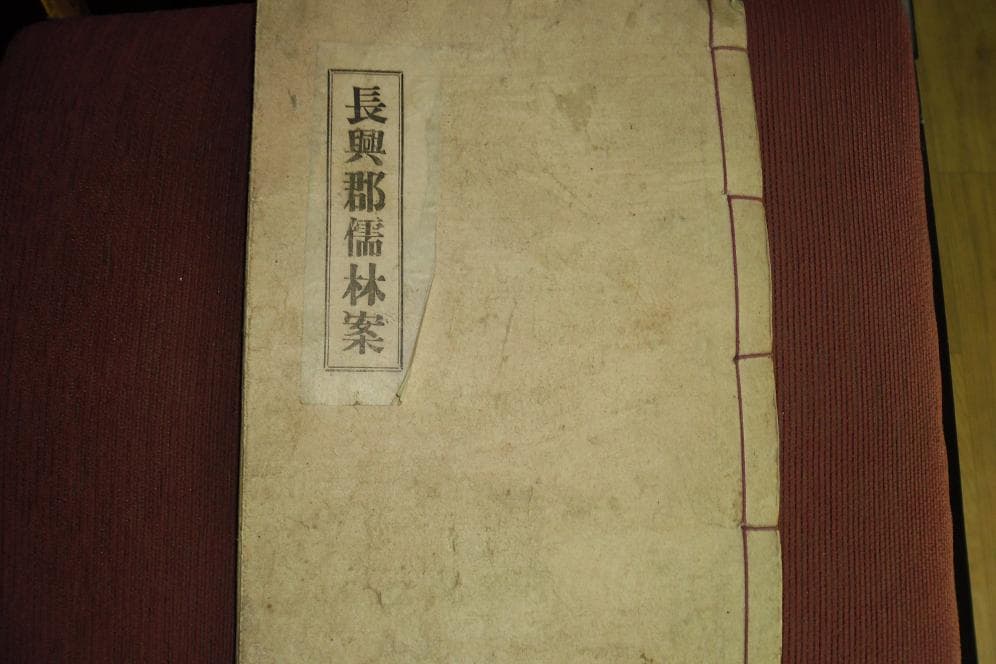 長興郡儒林案